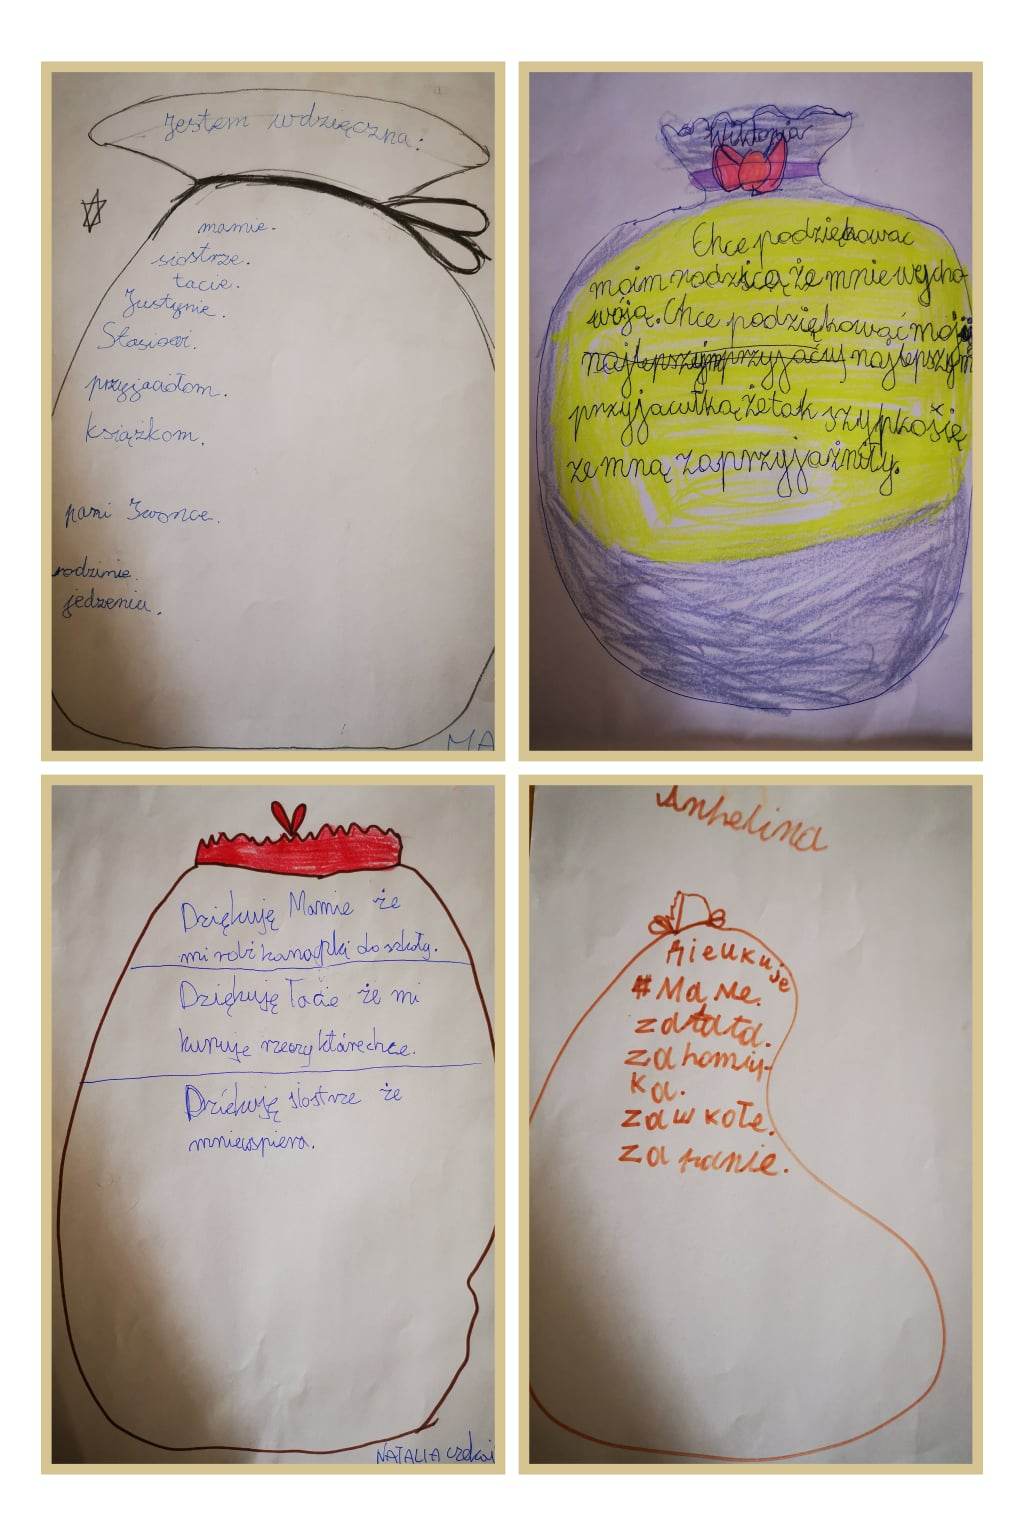 Jestem wdzięczna:
mamie.
siostrze.
tacie.
Justynie.
Stasiowi.
przyjaciołom.
książkom.
pani Iwonce.
rodzinie.
jedzeniu.
MA
Wiktoria
Chce podziękowac
moim rodzicą że mnie wycho-
wóją. Chce podziękowąć moją
najlepszejm przyjacuj najlepszym
przyjacułką że tak szypko się
ze mną zaprzyjaźniły.
Dziękuję Mamie że
mi robi kanapki do szkoły.
Dziękuję Tacie że mi
kupuje rzeczy które chce.
Dziękuję siostrze że
mnie wspiera.
NATALIA
Anhelina
#Ma Me.
za tata.
za homiy-
ka.
za w kołe.
za panie.